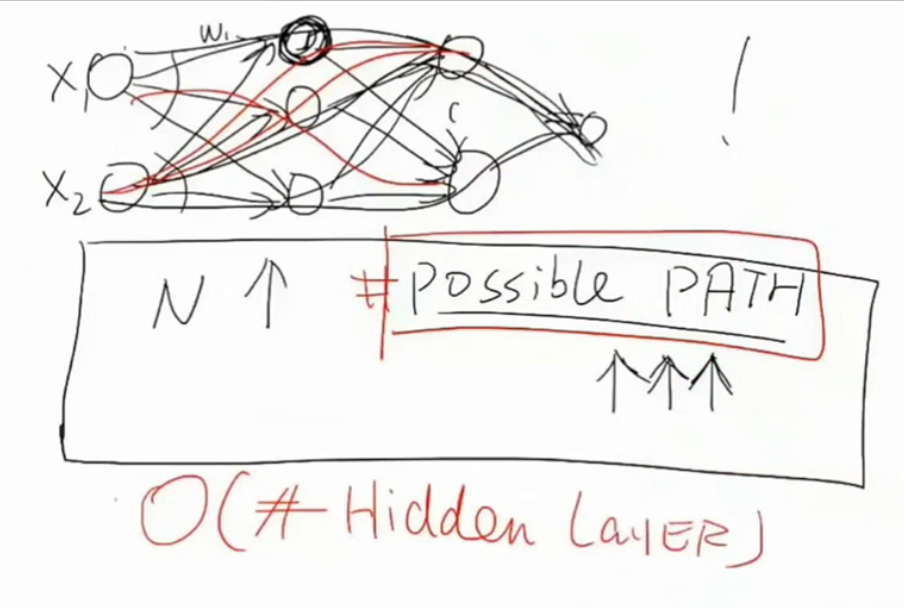 W1
X1
X2
!
N ↑ # possible PATH
↑↑↑
O(# Hidden LAYER)